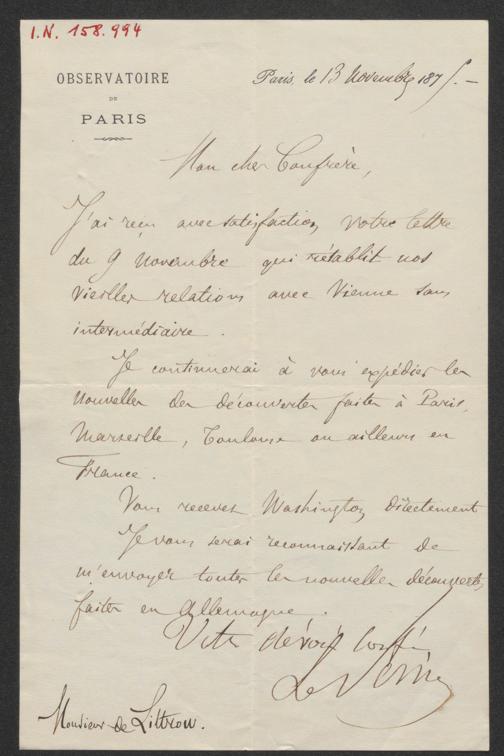 I.N. 158.994
OBSERVATOIRE
DE
PARIS
Paris, le 13 Novembre 1875. —
Mon cher Confrère,
J'ai reçu avec satisfaction votre lettre
du 9 Novembre qui rétablit nos
vieilles relations avec Vienne sans
intermédiaire.
Je continuerai à vous expédier les
nouvelles des découvertes faites à Paris,
Marseille, Toulouse ou ailleurs en
France.
Vous recevez Washington directement
Je vous serai reconnaissant de
m'envoyer toutes les nouvelles découvertes
faites en Allemagne.
Votre dévoué confrère
Le Verrier
Monsieur de Littrow.